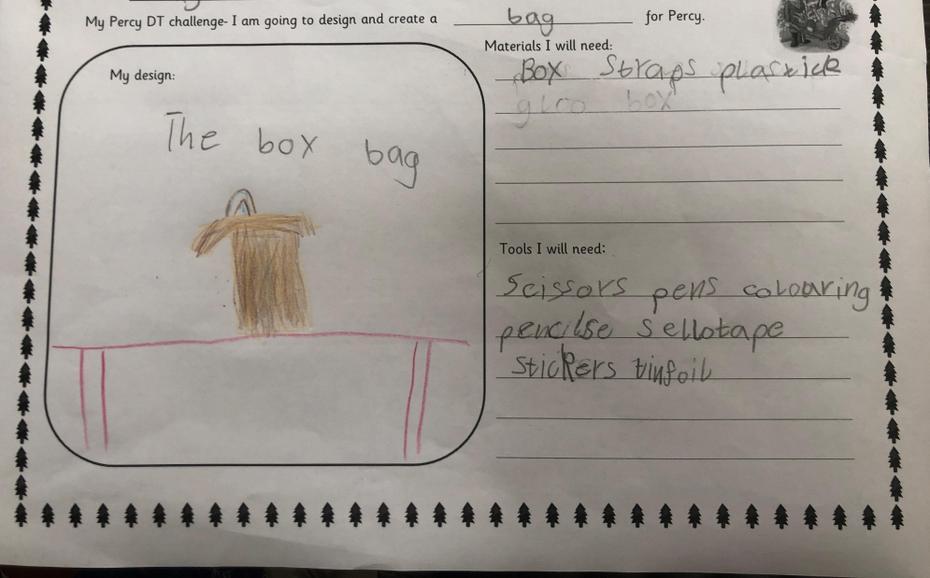 My Percy DT challenge- I am going to design and create a bag for Percy.
My design:
The box bag
Materials I will need:
Box Straps plastick
box
Tools I will need:
Scissors pens colouring
pencilse Sellotape
Stickers tinfoil